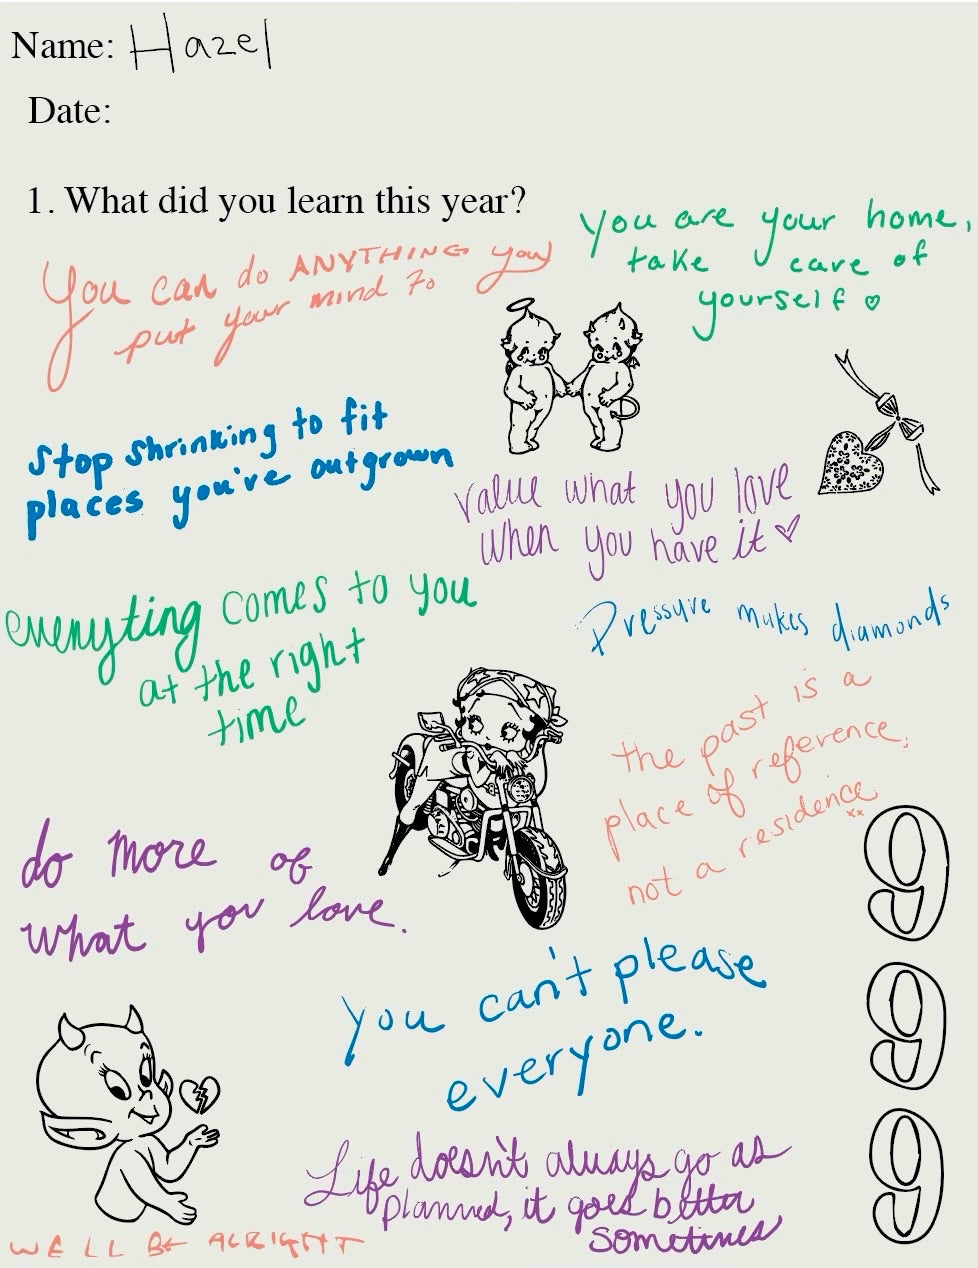 Name: Hazel
Date:
1. What did you learn this year?
You can do ANYTHING you
put your mind to
you are your home,
take care of
yourself ♡
Stop shrinking to fit
places you've outgrown
value what you love
when you have it ♡
everyting comes to you
at the right
time
Pressure makes diamonds
the past is a
place of reference,
not a residence xx
do more of
what you love.
9
9
9
you can't please
everyone.
Life doesn't always go as
planned, it goes better
sometimes
WELL BE ALRIGHT